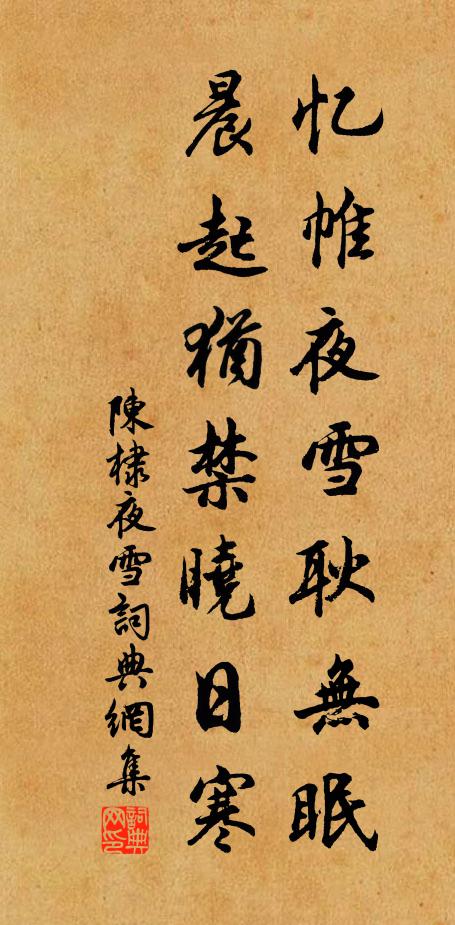 忆帷夜雪耿無眠
晨起猶禁曉日寒
陳棣夜雪詞典網集
詞典网印